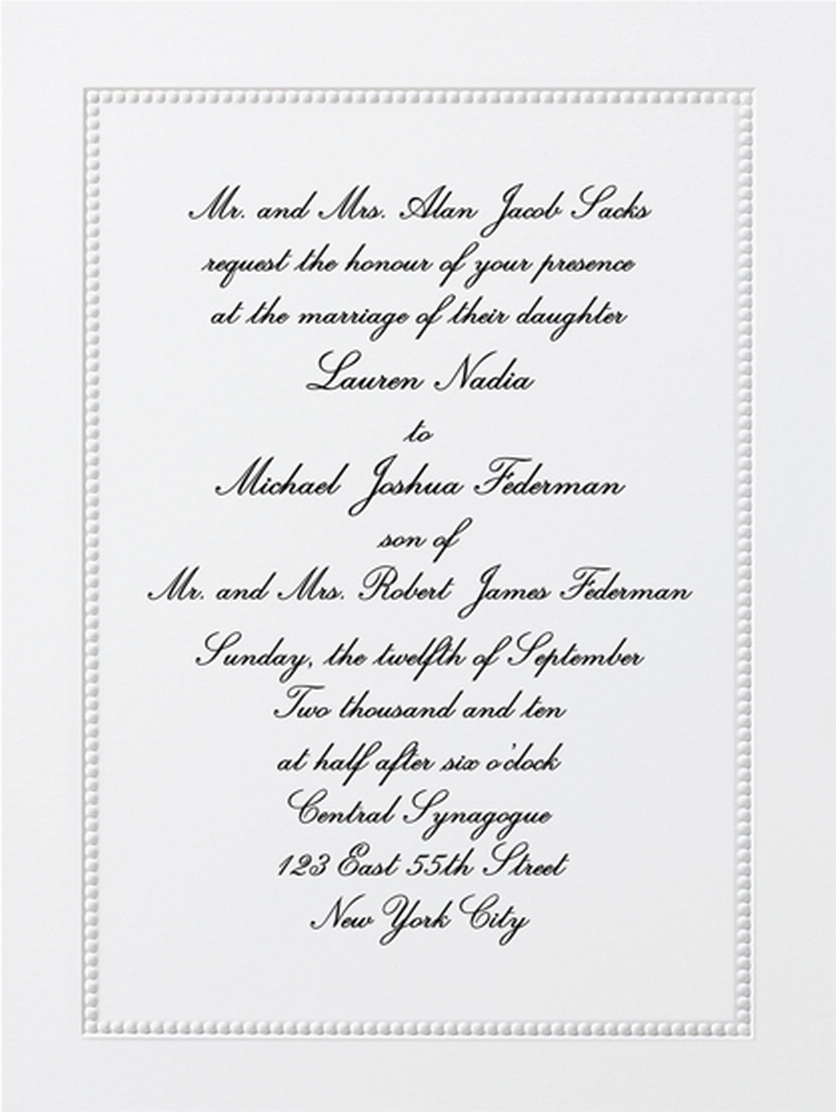 Mr. and Mrs. Alan Jacob Sacks
request the honour of your presence
at the marriage of their daughter
Lauren Nadia
to
Michael Joshua Federman
son of
Mr. and Mrs. Robert James Federman
Sunday, the twelfth of September
Two thousand and ten
at half after six o'clock
Central Synagogue
123 East 55th Street
New York City